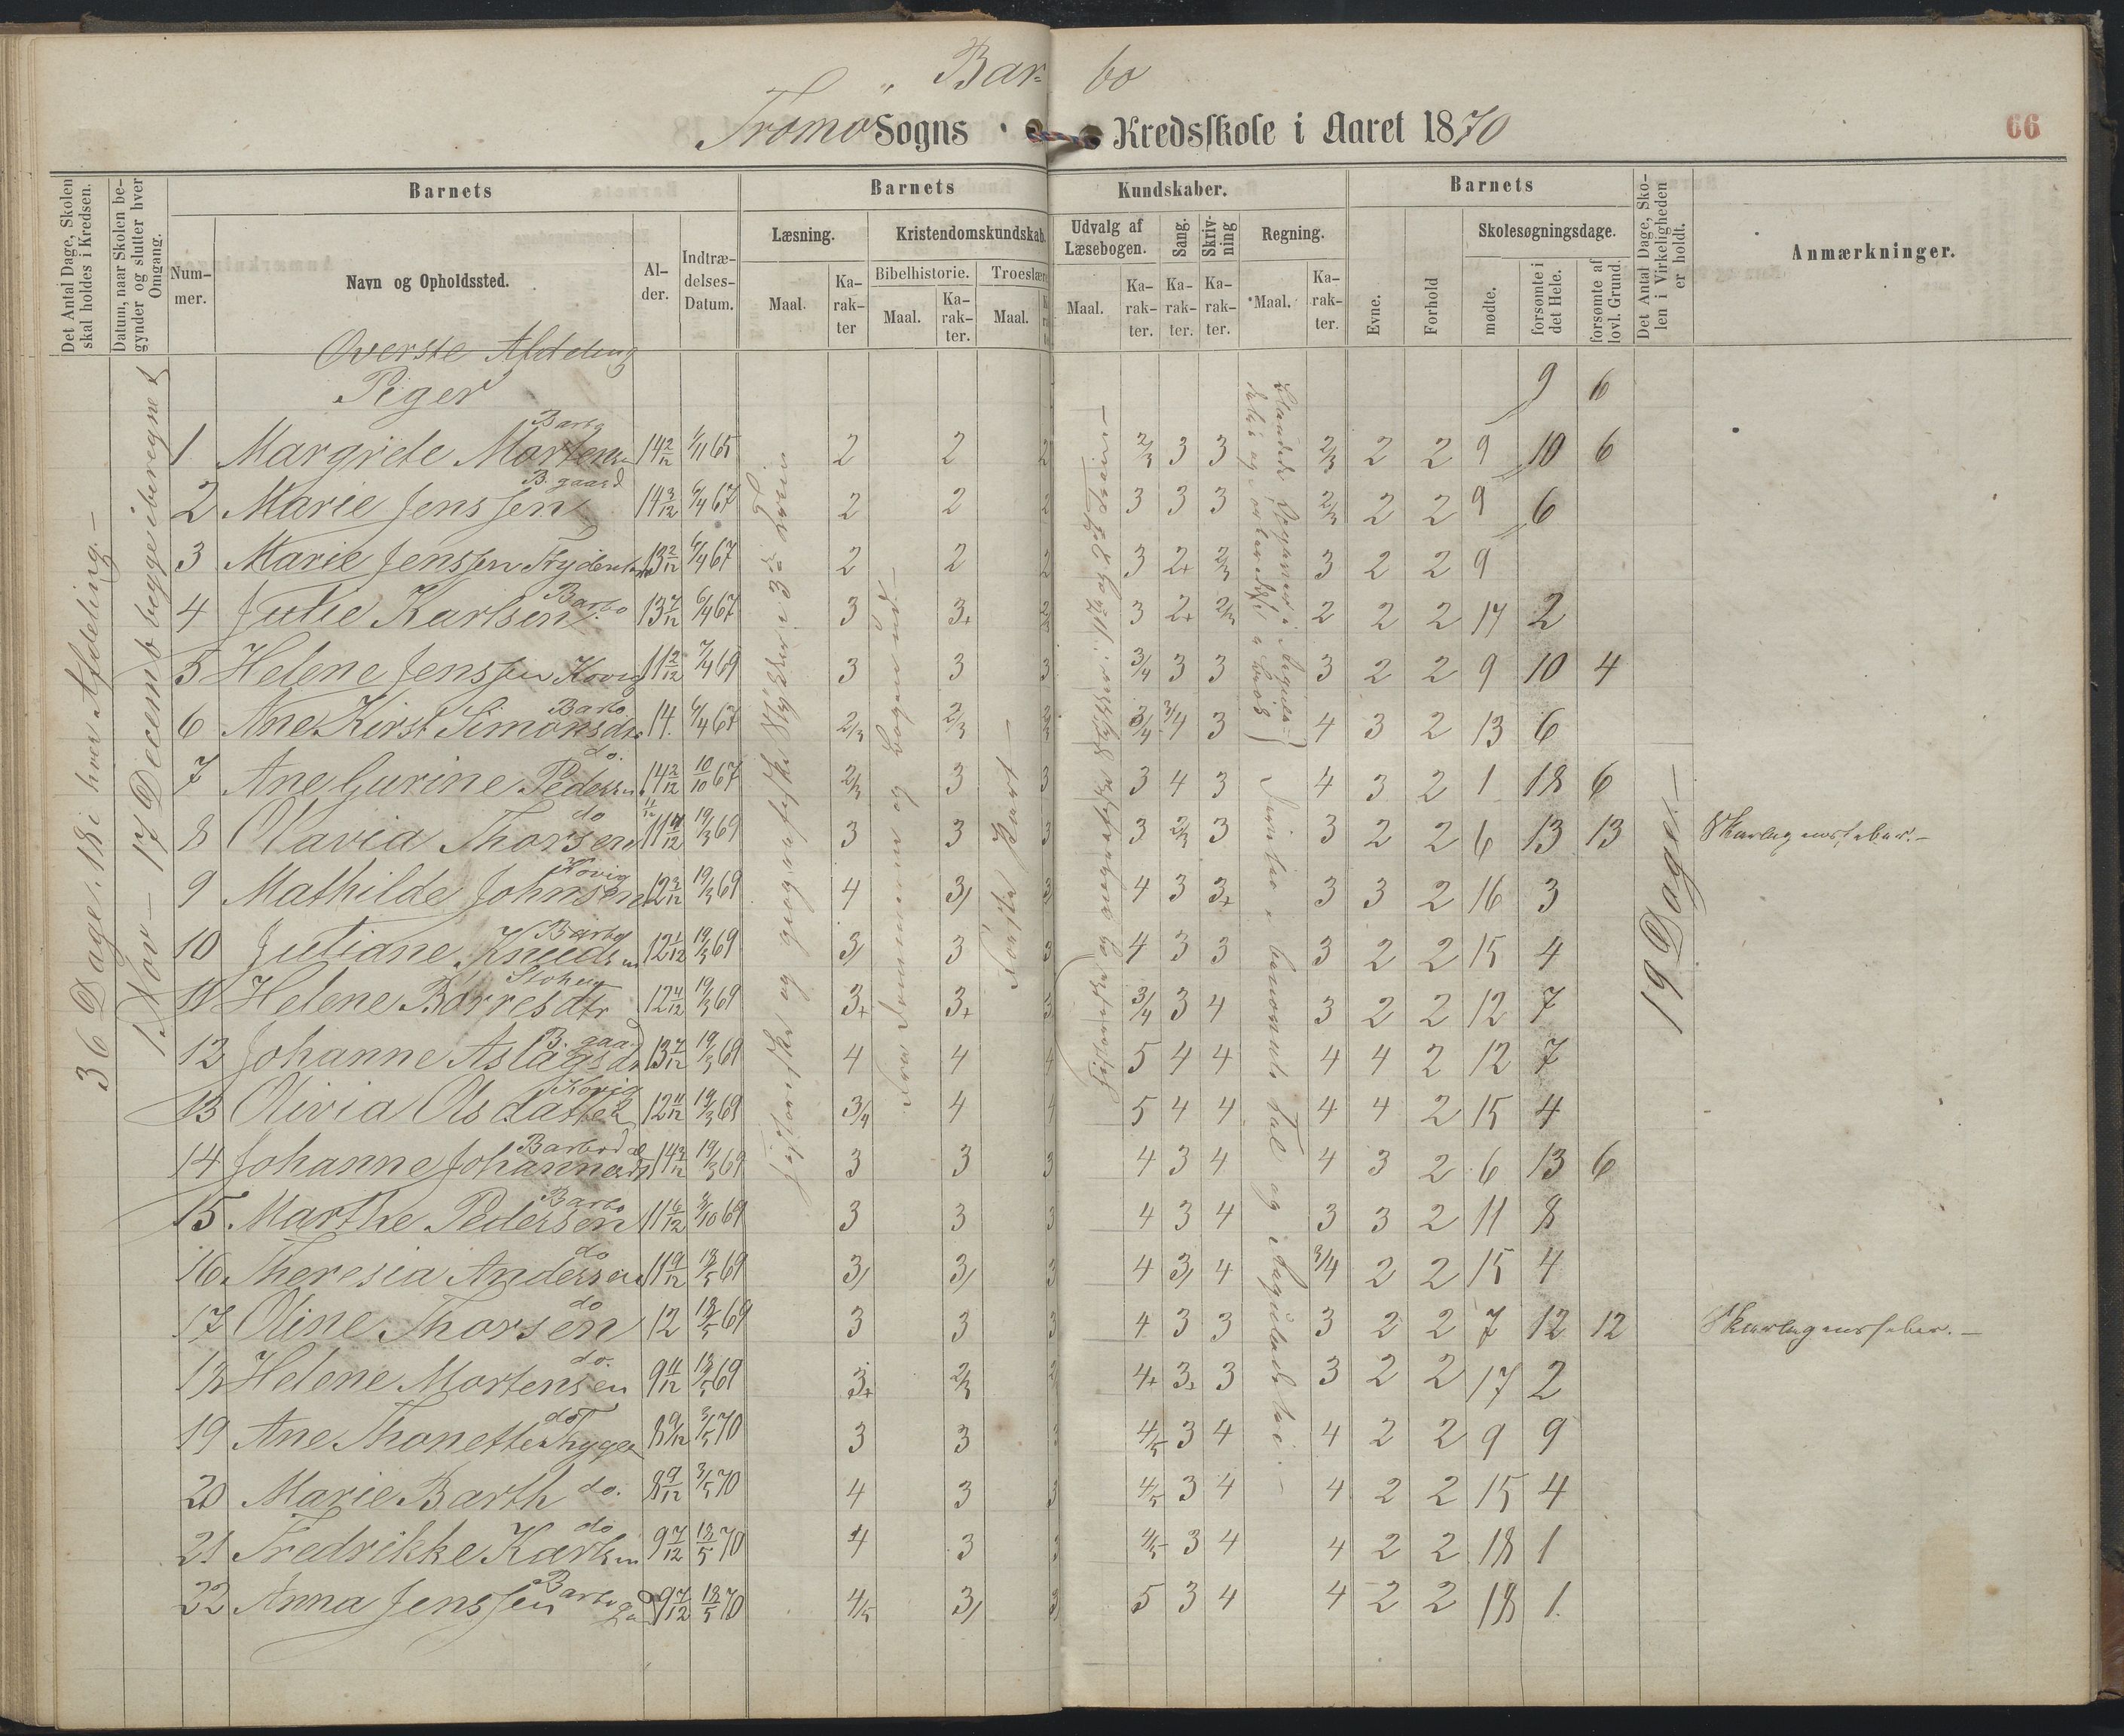 Bar- bo
Tromø Sogns Kredsskole i Aaret 1870
66
Det Antal Dage, Skolen skal holdes i Kredsen.
Datum, naar Skolen begynder og slutter hver Omgang.
Barnets
Nummer.
Navn og Opholdssted.
Alder.
Indtrædelses-Datum.
Barnets Kundskaber.
Læsning.
Maal.
Karakter
Kristendomskundskab.
Bibelhistorie.
Maal.
Karakter.
Troeslære
Maal.
Udvalg af Læsebogen.
Maal.
Karakter.
Sang.
Karakter.
Skrivning
Karakter.
Regning.
Maal.
Karakter.
Barnets
Evne.
Forhold
Skolesøgningsdage.
mødte.
forsømte i det Hele.
forsømte af lovl. Grund.
Det Antal Dage, Skolen i Virkeligheden er holdt.
Anmærkninger.
36 Dage, 18 i hver Afdeling.-
1 Nov - 17 Decemb begge iberegnet
Øverste Afdeling
Piger
9 6
1 Margrete Mortensen Barbo 14 2/12 1/11 65 2 2 2 2/3 3 3 2/3 2 2 9 10 6
2 Marie Jenssen B. gaard 14 3/12 6/4 67 2 2 2 3 3 3 2/3 2 2 9 6
3 Marie Jenssen 13 2/12 6/4 67 2 2 2 3 2+ 2/3 3 2 2 9
4 Julie Karlsen Barbo 13 7/12 6/4 67 3 3+ 2/3 3 2+ 2/3 2 2 2 17 2
5 Helene Jenssen Kovig 11 2/12 7/4 69 3 3 3 3/4 3 3 3 2 2 9 10 4
6 Ane Kirst Simonsdr Barbo 14. 6/4 67 2/3 2/3 2/3 3/4 3/4 3 4 3 2 13 6
7 Ane Gurine Pedersen do. 14 2/12 10/10 67 2/3 3 3 3 4 3 4 3 2 1 18 6
8 Olavia Thorsen do 11 11/12 19/3 69 3 3 3 3 2/3 3 3 2 2 6 13 13 Skarlagensfeber.-
9 Mathilde Johnsen Kovig 12 3/12 19/3 69 4 3/ 3 4 3 3+ 3 3 2 16 3
10 Juliane Knudsen Barbo 12 1/12 19/3 69 3/ 3 3 4 3 3 3 2 2 15 4
11 Helene Børresdtr 12 4/12 19/3 69 3+ 3+ 3 3/4 3 4 3 2 2 12 7
12 Johanne Aslagsdr B. gaard 13 7/12 19/3 69 4 4 4 5 4 4 4 4 2 12 7
13 Olivia Olsdatter Kovig 12 11/12 19/3 69 3/4 4 4 5 4 4 4 4 2 15 4
14 Johanne Johannesdr 14 3/12 19/3 69 3 3 3 4 3 4 4 3 2 6 13 6
15. Marthe Pedersen Barbo 11 6/12 3/10 69 3 3 3 4 3 4 3 3 2 11 8
16. Theresia Andersen do 11 9/12 13/5 69 3/ 3/ 3 4 3/ 4 3/4 2 2 15 4
17 Oline Thorsen do 12 13/5 69 3 3 3 4 3 3 3 2 2 7 12 12 Skarlagensfeber.-
18 Helene Mortensen do. 9 11/12 13/5 69 3+ 2/3 4+ 3+ 3 3 2 2 17 2
19 Ane Thonette Thygesen do 8 9/12 3/5 70 3 3 4/5 3 4 4 2 2 9 9
20 Marie Barth do. 8 9/12 3/5 70 4 3 3 4/5 3 4 4 2 2 15 4
21 Fredrikke Karlsen do 9 7/12 13/5 70 4 3 3 4/5 3 4 4 2 2 18 1
22 Anna Jenssen Barbo gaard 9 7/12 13/5 70 4/5 3/ 3 5 3 4 4 2 2 18 1.
Historiske og geografiske Stykker i 3die Trin
Første Part -
19 Dage.-